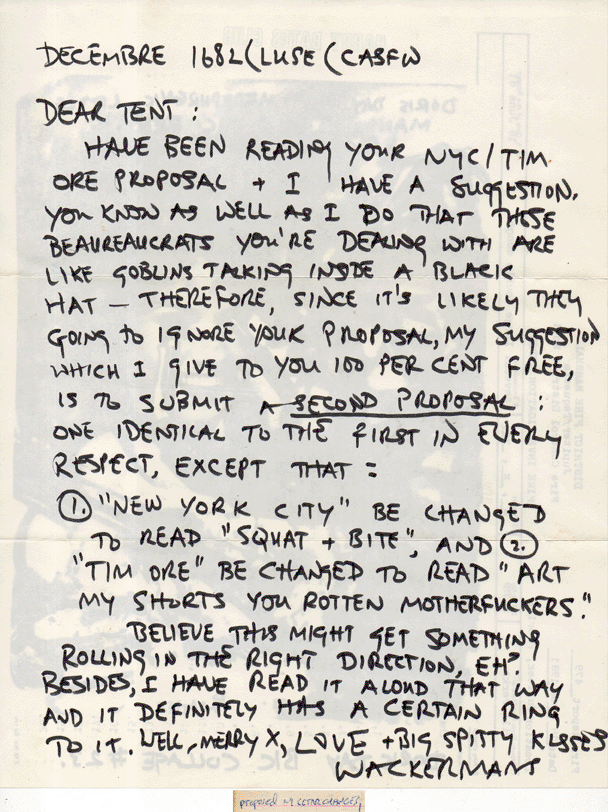 DECEMBRE 1682(LUSE(CASFW
DEAR TENT:
HAVE BEEN READING YOUR NYC/TIM
ORE PROPOSAL + I HAVE A SUGGESTION.
YOU KNOW AS WELL AS I DO THAT THOSE
BEAUREAUCRATS YOU'RE DEALING WITH ARE
LIKE GOBLINS TALKING INSIDE A BLACK
HAT — THEREFORE, SINCE IT'S LIKELY THEY
GOING TO IGNORE YOUR PROPOSAL, MY SUGGESTION
WHICH I GIVE TO YOU 100 PER CENT FREE,
IS TO SUBMIT A SECOND PROPOSAL:
ONE IDENTICAL TO THE FIRST IN EVERY
RESPECT, EXCEPT THAT:
1. "NEW YORK CITY" BE CHANGED
TO READ "SQUAT + BITE", AND 2.
"TIM ORE" BE CHANGED TO READ "ART
MY SHORTS YOU ROTTEN MOTHERFUCKERS."
BELIEVE THIS MIGHT GET SOMETHING
ROLLING IN THE RIGHT DIRECTION, EH?
BESIDES, I HAVE READ IT ALOUD THAT WAY
AND IT DEFINITELY HAS A CERTAIN RING
TO IT. WELL, MERRY X, LOVE + BIG SPITTY KISSES
WACKERMANS
proposed